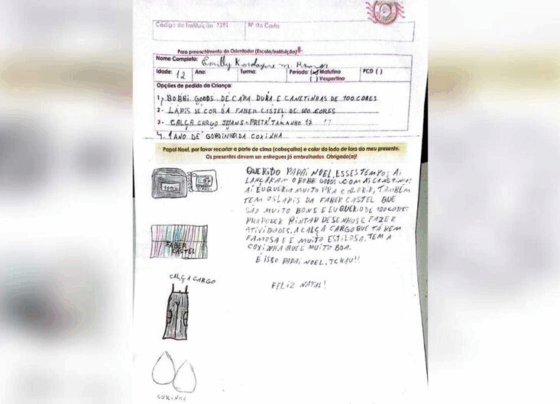 Código da Instituição
Nº da Carta
Para preenchimento do Orientador (Escola/Instituição):
Nome Completo: Emilly
Idade: 12 Ano: Turma: Período: Matutino PCD ( )
Vespertino
Opções de pedido da Criança:
1, BOBBI GOODS DE CAPA DURA E CANETINHAS DE 100 CORES
2. LAPIS DE COR DA FABER CASTEL DE 100 CORES
3. CALÇA CARGO JEANS PRETA TAMANHO
4. 1 ANO DE COXINHA
Papai Noel, por favor recortar a parte de cima (cabeçalho) e colar do lado de fora do meu presente.
Os presentes devem ser entregues já embalados. Obrigado(a)!
QUERIDO PAPAI NOEL, ESSES TEMPOS AI
LANÇARAM O BOBBI GOODS COM AS CANETINHAS
AI EU QUERIA MUITO PRA COLORIR, TAMBÉM
TEM OS LAPIS DA FABER CASTEL QUE
SÃO MUITO BONS E EU QUERO DE 100 CORES
PINTAR DESENHOS E FAZER
ATIVIDADES, A CALÇA CARGO QUE TÁ BEM
FAMOSA E E MUITO ESTILOSA, TEM A
COXINHA QUE E MUITO BOA.
E ISSO PAPAI NOEL, TCHAU!!
FELIZ NATAL!
FABER
CASTEL
CALÇA CARGO
COXINHA